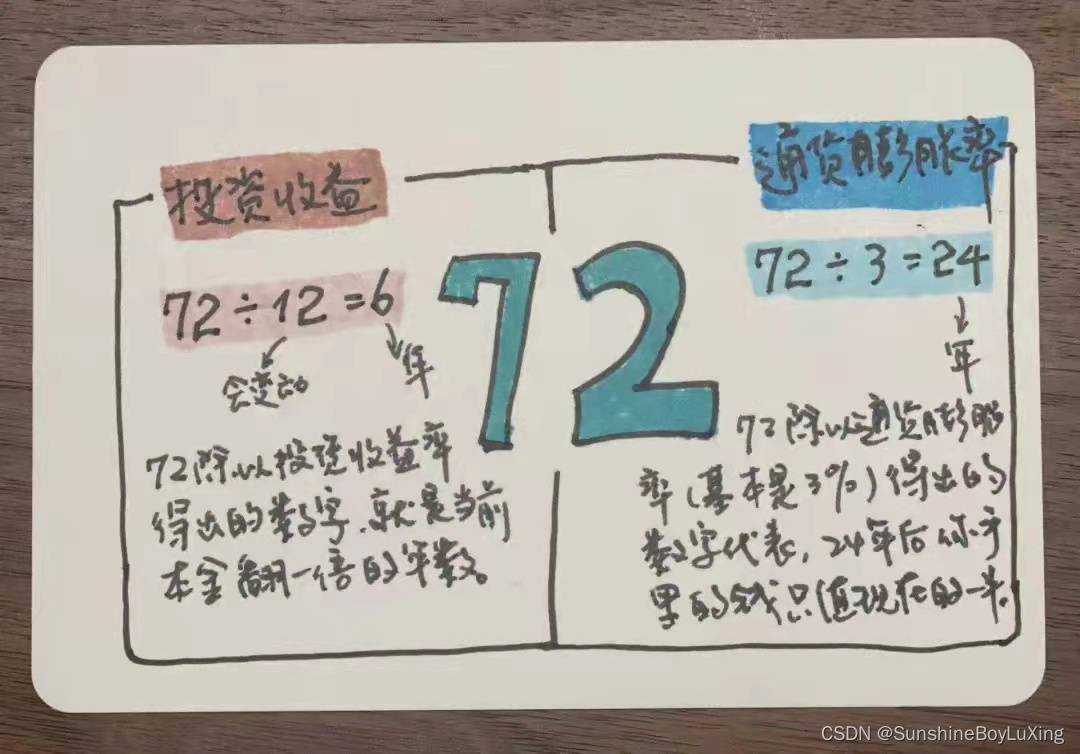 投资收益
72÷12=6
会变动
年
72除以投资收益率
得出的数字,就是当前
本金翻一倍的年数。
72
通货膨胀率
72÷3=24
年
72除以通货膨胀
率(基本是3%)得出的
数字代表,24年后你手
里的钱只值现在的一半。
CSDN @SunshineBoyLuXing